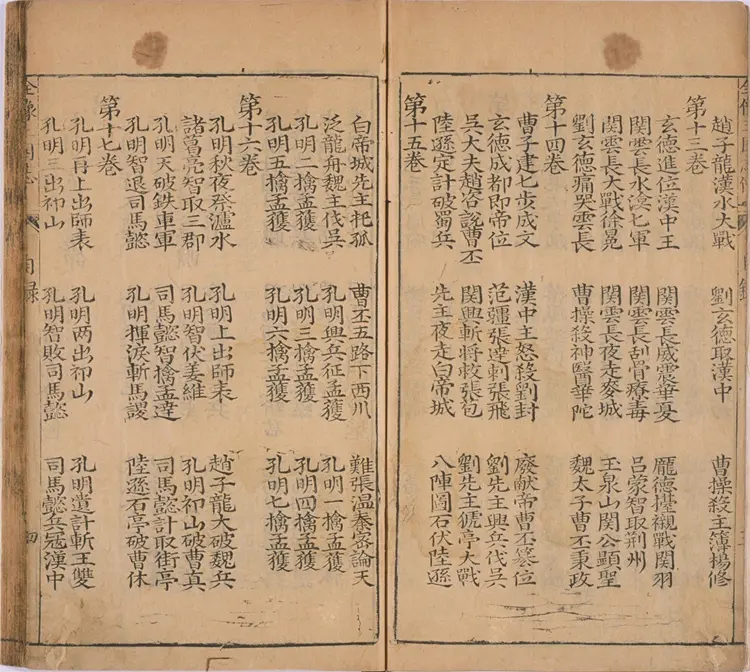 趙子龍漢水大戰 劉玄德取漢中 曹操殺主簿楊修
第十三卷
玄德進位漢中王 関雲長威震華夏 龐德擡櫬戰関羽
関雲長水渰七軍 関雲長刮骨療毒 吕蒙智取荆州
関雲長大戰徐晃 関雲長夜走麥城 玉泉山関公顯聖
劉玄德痛哭雲長 曹操殺神醫華陀 魏太子曹丕秉政
第十四卷
曹子建七步成文 漢中主怒殺劉封 廢献帝曹丕篡位
玄德成都即帝位 范疆張達刺張飛 劉先主興兵伐吳
吳大夫趙咨說曹丕 関興斬將救張包 劉先主猇亭大戰
陸遜定計破蜀兵 先主夜走白帝城 八陣圖石伏陸遜
第十五卷
白帝城先主托孤 曹丕五路下西川 難張温秦宓論天
泛龍舟魏主伐吳 孔明興兵征孟獲 孔明一擒孟獲
孔明二擒孟獲 孔明三擒孟獲 孔明四擒孟獲
孔明五擒孟獲 孔明六擒孟獲 孔明七擒孟獲
第十六卷
孔明秋夜祭瀘水 孔明上出師表 趙子龍大破魏兵
諸葛亮智取三郡 孔明智伏姜維 孔明祁山破曹真
孔明天破鉄車軍 司馬懿智擒孟達 司馬懿計取街亭
孔明智退司馬懿 孔明揮淚斬馬謖 陸遜石亭破曹休
第十七卷
孔明再上出師表 孔明两出祁山 孔明遺計斬王雙
孔明三出祁山 孔明智敗司馬懿 司馬懿兵冦漢中
目録 四